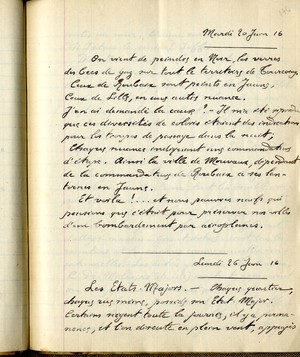 Mardi 20 Juin 16
On vient de peindre en Noir, les verres
des becs de gaz sur tout le territoire de Tourcoing
Ceux de Roubaix sont peints en Jaune,
Ceux de Lille, en une autre nuance.
J'en ai demandé la cause? - Il m'a été répondu
que ces diversités de coloris étaient des indications
pour les troupes de passage dans la nuit,
Chaque nuance indiquant une commandature
d'étape. Ainsi la ville de Mouvaux, dépendant
de la commandature de Roubaix a ses lan-
ternes en Jaune.
Et voilà!... Et nous pauvres naïfs qui
pensions que c'était pour préserver nos villes
d'un bombardement par aéroplanes.
Lundi 26 Juin 16
Les Etats-Majors. - Chaque quartier,
chaque rue même, possède son Etat Major.
Certains siègent toute la journée, il y a perma-
nence, et l'on discute en plein vent, appuyés